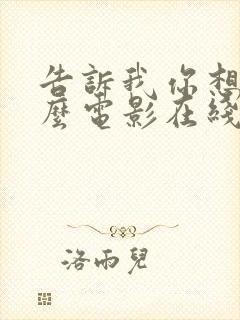 告訴我你想
麼電影在綫
洛雨兒